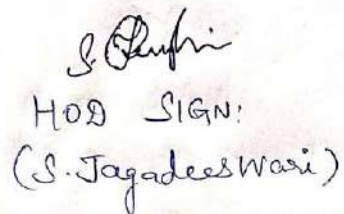 HOD SIGN:
(S. Jagadeeswari)